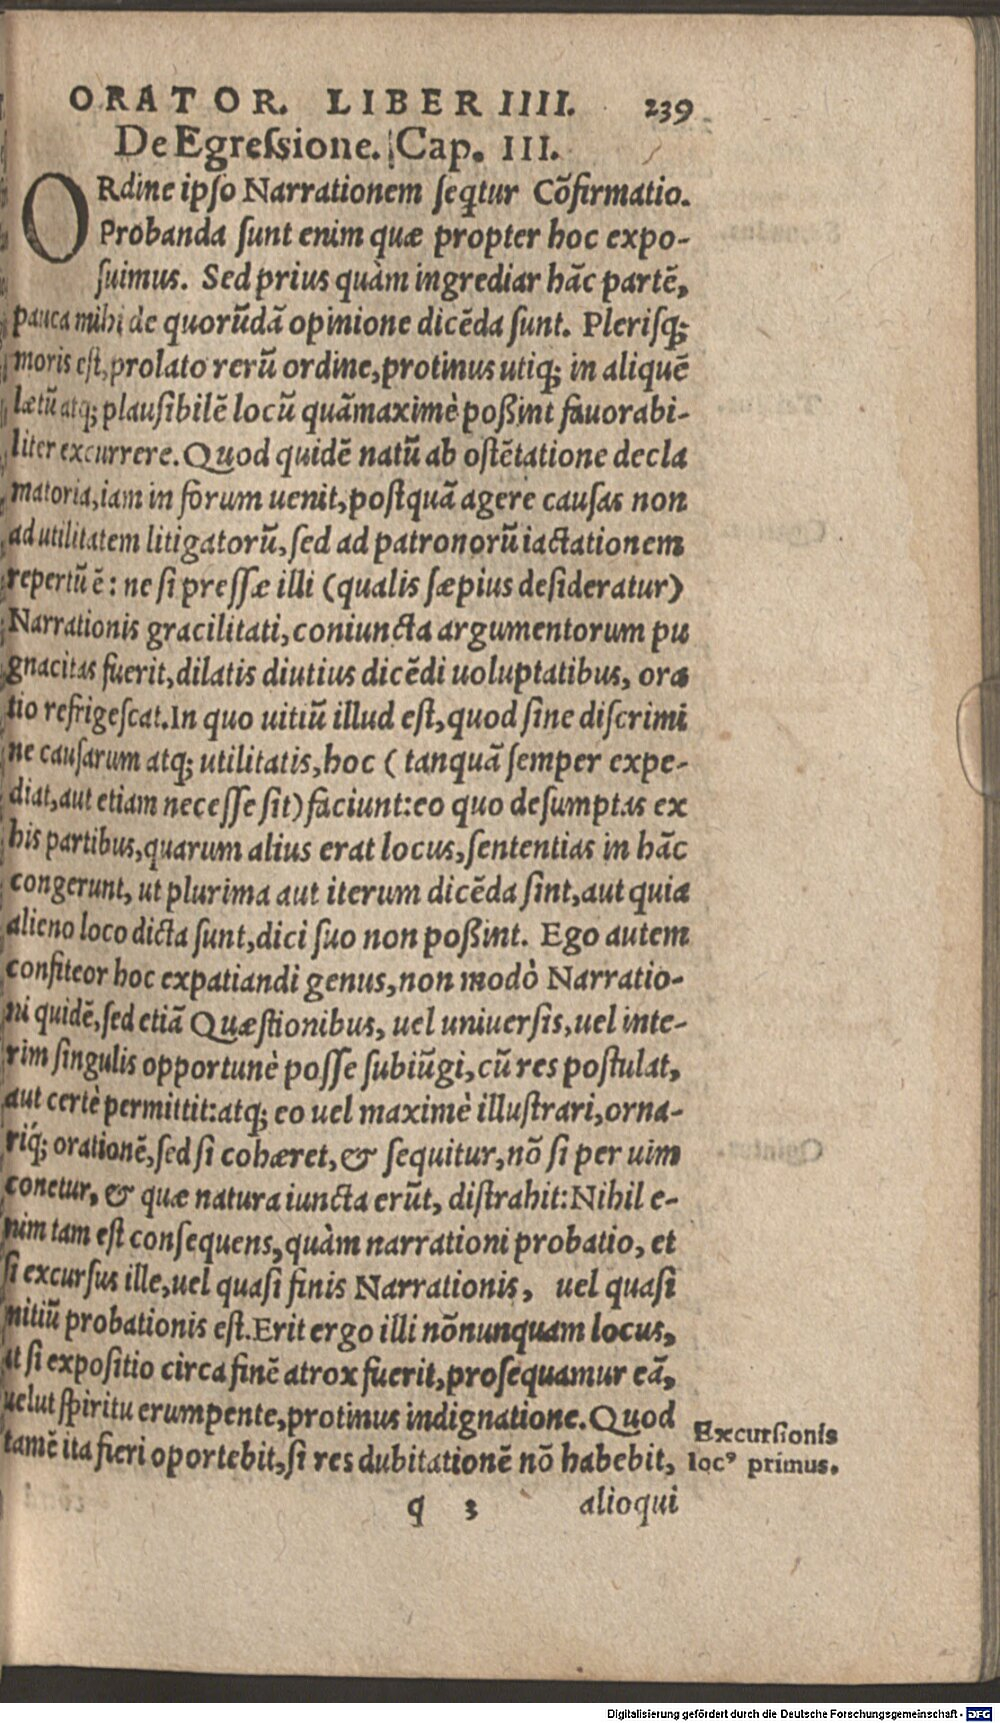 ORATOR. LIBER IIII. 239
De Egreſsione. Cap. III.
ORdine ipſo Narrationem ſeq̃tur Cõfirmatio.
Probanda ſunt enim quæ propter hoc expo-
ſuimus. Sed prius quàm ingrediar hãc partẽ,
pauca mihi de quorũdã opinione dicẽda ſunt. Pleriſq;
moris eſt, prolato rerũ ordine, protinus utiq; in aliquẽ
lætũ atq; plauſibilẽ locũ quãmaximè poßint fauorabi-
liter excurrere. Quod quidẽ natũ ab oſtẽtatione decla
matoria, iam in forum uenit, poſtquã agere cauſas non
ad utilitatem litigatorũ, ſed ad patronorũ iactationem
repertũ ẽ: ne ſi preſſæ illi (qualis ſæpius deſideratur)
Narrationis gracilitati, coniuncta argumentorum pu
gnacitas fuerit, dilatis diutius dicẽdi uoluptatibus, ora
tio refrigeſcat. In quo uitiũ illud eſt, quod ſine diſcrimi
ne cauſarum atq; utilitatis, hoc (tanquã ſemper expe-
diat, aut etiam neceſſe ſit) faciunt: eo quo deſumptas ex
his partibus, quarum alius erat locus, ſententias in hãc
congerunt, ut plurima aut iterum dicẽda ſint, aut quia
alieno loco dicta ſunt, dici ſuo non poßint. Ego autem
confiteor hoc expatiandi genus, non modò Narratio-
ni quidẽ, ſed etiã Quæſtionibus, uel uniuerſis, uel inte-
rim ſingulis opportunè poſſe ſubiũgi, cũ res poſtulat,
aut certè permittit: atq; eo uel maximè illuſtrari, orna-
riq́; orationẽ, ſed ſi cohæret, & ſequitur, nõ ſi per uim
conetur, & quæ natura iuncta erũt, diſtrahit: Nihil e-
nim tam eſt conſequens, quàm narrationi probatio, et
ſi excurſus ille, uel quaſi finis Narrationis, uel quaſi
nitiũ probationis eſt. Erit ergo illi nõnunquam locus,
ut ſi expoſitio circa finẽ atrox fuerit, proſequamur eã,
uelut ſpiritu erumpente, protinus indignatione. Quod
tamẽ ita fieri oportebit, ſi res dubitationẽ nõ habebit,
Excurſionis
locꝰ primus.
q 3 alioqui
Digitalisierung gefördert durch die Deutsche Forschungsgemeinschaft - DFG